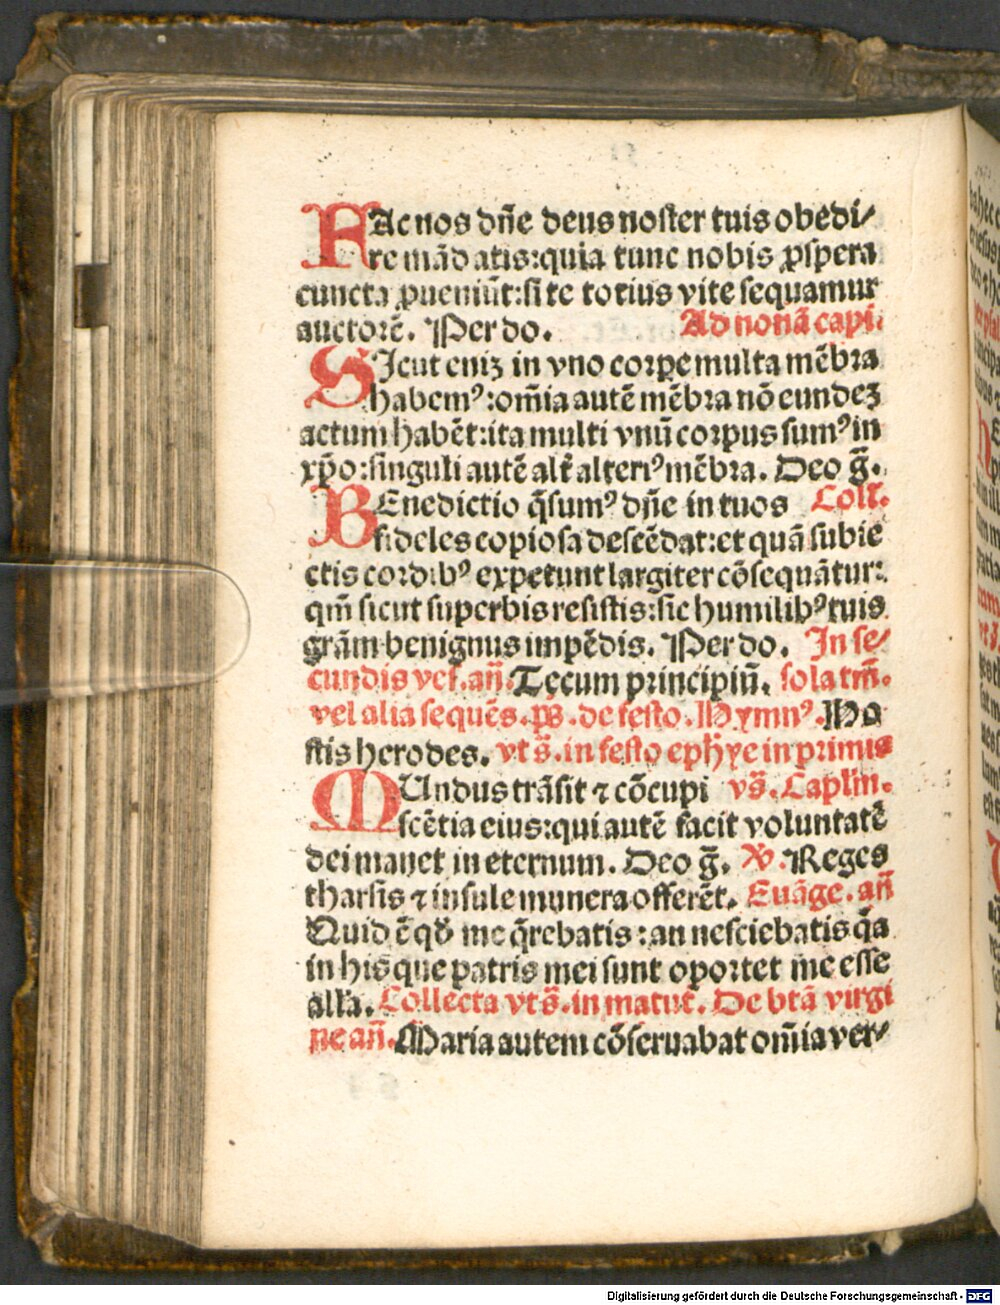 FAc nos dn̄e deus noster tuis obedi/
re mādatis: quia tunc nobis ꝓspera
cuncta ꝓueniūt: si te totius vite sequamur
auctorē. Per do. Ad nonā capi.
SIcut eniꝫ in vno corpe multa mēbra
habemꝰ: om̄ia autē mēbra nō eundeꝫ
actum habēt: ita multi vnū corpus sumꝰ in
xp̄o: singuli autē alt̄ alteriꝰ mēbra. Deo ḡ.
BEnedictio q̄sumꝰ dn̄e in tuos Coll̄.
fideles copiosa descēdat: et quā subie
ctis cordibꝰ expetunt largiter cōsequātur:
qm̄ sicut superbis resistis: sic humilibꝰ tuis
grām benignus impēdis. Per do. In se/
cundis ves. an̄. Tecum principiū. sola tm̄.
vel alia sequēs. ps̄. de festo. Hymnꝰ. Ho
stis herodes. vt s̄. in festo eph̄ye in primis
MUndus trāsit ⁊ cōcupi vs̄. Capl̄m.
scētia eius: qui autē facit voluntatē
dei manet in eternum. Deo ḡ. ꝟ. Reges
tharsis ⁊ insule munera offerēt. Euāge. an̄
Quid ē qd̄ me q̄rebatis: an nesciebatis q̄a
in his que patris mei sunt oportet me esse
all̄a. Collecta vt s̄. in matut̄. De btā virgi
ne an̄. Maria autem cōseruabat om̄ia ver/
Digitalisierung gefördert durch die Deutsche Forschungsgemeinschaft - DFG